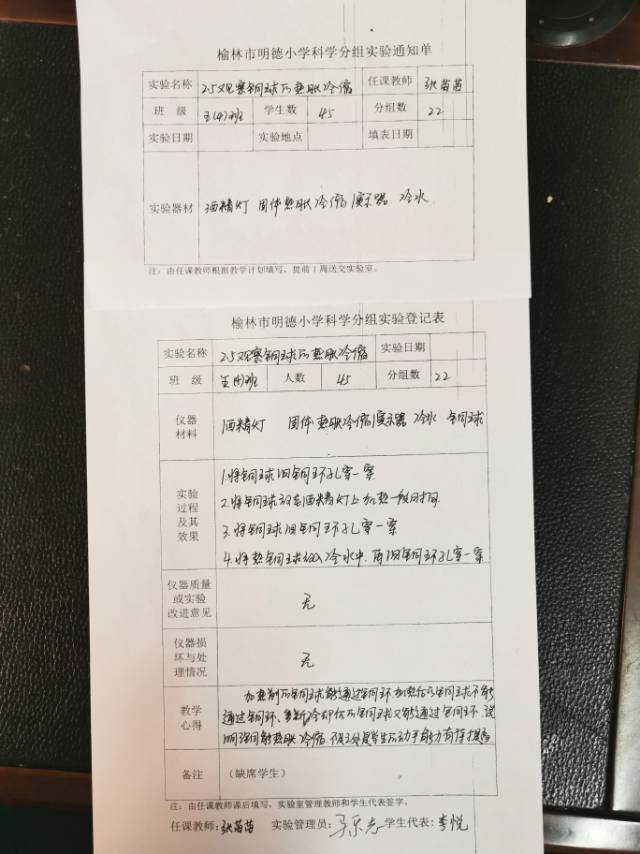 榆林市明德小学科学分组实验通知单
实验名称 2.5观察铜球的热胀冷缩 任课教师 张苗苗
班 级 三(4)班 学生数 45 分组数 22
实验日期 实验地点 填表日期
实验器材 酒精灯 固体热胀冷缩演示器 冷水
注：由任课教师根据教学计划填写，提前1周送交实验室。
榆林市明德小学科学分组实验登记表
实验名称 2.5观察铜球的热胀冷缩 实验日期
班 级 三(4)班 人数 45 分组数 22
仪器
材料
酒精灯 固体热胀冷缩演示器 冷水 铜球
实验
过程
及其
效果
1.将铜球泪铜环孔穿一穿
2.将铜球放在酒精灯上加热一段时间
3.将铜球泪铜环孔穿一穿
4.将热铜球放入冷水中，再泪铜环孔穿一穿
仪器质量
或实验
改进意见
无
仪器损
坏与处
理情况
无
教学
心得
加热前的铜球能通过铜环加热后的铜球不能
通过铜环、重新冷却后的铜球又能通过铜环，说
明铜能热胀冷缩 学生的动手能力有待提高
备注 （缺席学生）
注：由任课教师课后填写，实验室管理教师和学生代表签字。
任课教师：张苗苗 实验管理员： 学生代表：李悦